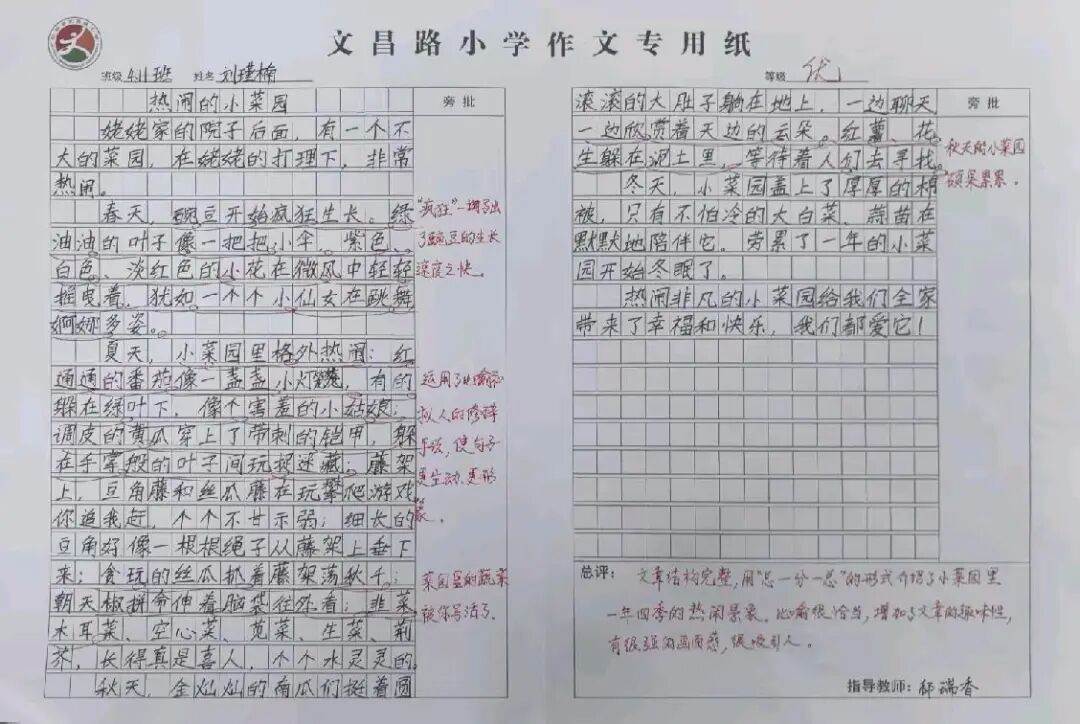 文昌路小学作文专用纸
班级 4.11班 姓名 刘瑾楠
等级 优
旁批
热闹的小菜园
姥姥家的院子后面，有一个不
大的菜园，在姥姥的打理下，非常
热闹。
春天，豌豆开始疯狂生长。绿
油油的叶子像一把把小伞。紫色、
白色、淡红色的小花在微风中轻轻
摇曳着，犹如一个个小仙女在跳舞
婀娜多姿。
夏天，小菜园里格外热闹：红
通通的番茄像一盏盏小灯笼，有的
躲在绿叶下，像个害羞的小姑娘；
调皮的黄瓜穿上了带刺的铠甲，躲
在手掌般的叶子间玩捉迷藏；藤架
上，豆角藤和丝瓜藤在玩攀爬游戏
你追我赶，个个不甘示弱；细长的
豆角好像一根根绳子从藤架上垂下
来；贪玩的丝瓜抓着藤架荡秋千；
朝天椒拼命伸着脑袋往外看；韭菜
木耳菜、空心菜、苋菜、生菜、荆
芥，长得真是喜人，个个水灵灵的。
秋天，金灿灿的南瓜们挺着圆
"疯狂"一词写出
了豌豆的生长
速度之快。
运用了比喻和
拟人的修辞
手法，使句子
更生动、更形
象。
菜园里的蔬菜
被你写活了。
旁批
滚滚的大肚子躺在地上，一边聊天
一边欣赏着天边的云朵。红薯、花
生躲在泥土里，等待着人们去寻找。
冬天，小菜园盖上了厚厚的棉
被，只有不怕冷的大白菜、蒜苗在
默默地陪伴它。劳累了一年的小菜
园开始冬眠了。
热闹非凡的小菜园给我们全家
带来了幸福和快乐，我们都爱它！
秋天的小菜园
硕果累累。
总评： 文章结构完整，用"总一分一总"的形式介绍了小菜园里
一年四季的热闹景象。比喻很恰当，增加了文章的趣味性，
有很强的画面感，很吸引人。
指导教师：郝瑞香